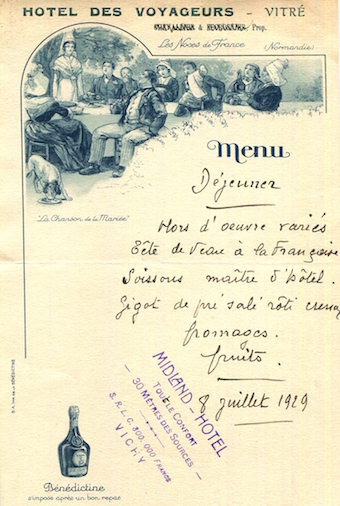 HOTEL DES VOYAGEURS - VITRÉ
Prop.
Les Noces de France (Normandie)
Menu
Déjeuner
Hors d'oeuvre variés
Tête de Veau à la Française
Soissons maître d'hôtel.
Gigot de pré salé rôti
fromages.
fruits.
8 juillet 1929
"La Chanson de la Mariée"
MIDLAND-HOTEL
TOUT LE CONFORT
- 30 MÈTRES DES SOURCES -
S.R.L.C. 800.000 FRANCS
VICHY
Bénédictine
s'impose après un bon repas